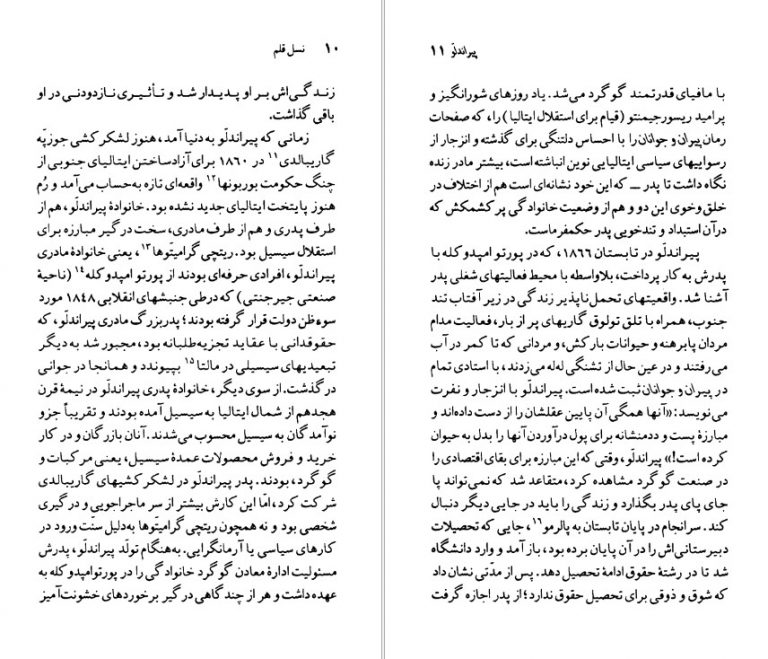 ۱۰ نسل قلم
زندگی‌اش بر او پدیدار شد و تأثیری نازدودنی در او
باقی گذاشت.
زمانی که پیراندلّو به دنیا آمد، هنوز لشکرکشی جوزپّه
گاریبالدی۱۱ در ۱۸۶۰ برای آزادساختن ایتالیای جنوبی از
چنگ حکومت بوربونها۱۲ واقعه‌ای تازه به‌حساب می‌آمد و رُم
هنوز پایتخت ایتالیای جدید نشده بود. خانوادهٔ پیراندلّو، هم از
طرف پدری و هم از طرف مادری، سخت درگیر مبارزه برای
استقلال سیسیل بود. ریتچی گرامیتّوها۱۳، یعنی خانوادهٔ مادری
پیراندلّو، افرادی حرفه‌ای بودند از پورتو امپدوکله۱۴ (ناحیهٔ
صنعتی جیرجنتی) که درطی جنبشهای انقلابی ۱۸۴۸ مورد
سوءظن دولت قرار گرفته بودند؛ پدربزرگ مادری پیراندلّو، که
حقوقدانی با عقاید تجزیه‌طلبانه بود، مجبور شد به‌دیگر
تبعیدیهای سیسیلی در مالتا۱۵ بپیوندد و همانجا در جوانی
درگذشت. از سوی دیگر، خانوادهٔ پدری پیراندلّو در نیمهٔ قرن
هجدهم از شمال ایتالیا به سیسیل آمده بودند و تقریباً جزو
نوآمدگان به سیسیل محسوب می‌شدند. آنان بازرگان و در کار
خرید و فروش محصولات عمدهٔ سیسیل، یعنی مرکبات و
گوگرد، بودند. پدر پیراندلّو در لشکرکشیهای گاریبالدی
شرکت کرد، امّا این کارش بیشتر از سر ماجراجویی و درگیری
شخصی بود و نه همچون ریتچی گرامیتّوها به‌دلیل سنّت ورود در
کارهای سیاسی یا آرمانگرایی. به‌هنگام تولّد پیراندلّو، پدرش
مسئولیت ادارهٔ معادن گوگرد خانوادگی را در پورتوامپدوکله به
عهده داشت و هر از چندگاهی درگیر برخوردهای خشونت‌آمیز
پیراندلّو ۱۱
با مافیای قدرتمند گوگرد می‌شد. یاد روزهای شورانگیز و
پرامید ریسورجیمنتو (قیام برای استقلال ایتالیا) را، که صفحات
رمان پیران و جوانان را با احساس دلتنگی برای گذشته و انزجار از
رسواییهای سیاسی ایتالیایی نوین انباشته است، بیشتر مادر زنده
نگاه داشت تا پدر ــ که این خود نشانه‌ای است هم از اختلاف در
خلق‌وخوی این دو و هم از وضعیت خانوادگی پر کشمکش که
درآن استبداد و تندخویی پدر حکمفرماست.
پیراندلّو در تابستان ۱۸۶۶، که در پورتو امپدوکله با
پدرش به کار پرداخت، بلاواسطه با محیط فعالیتهای شغلی پدر
آشنا شد. واقعیتهای تحمل‌ناپذیر زندگی در زیر آفتاب تند
جنوب، همراه با تلق تولوق گاریهای پر از بار، فعالیت مدام
مردان پابرهنه و حیوانات بارکش، و مردانی که تا کمر در آب
می‌رفتند و در عین حال از تشنگی له‌له می‌زدند، با استادی تمام
در پیران و جوانان ثبت شده است. پیراندلّو با انزجار و نفرت
می‌نویسد: «آنها همگی آن پایین عقلشان را از دست داده‌اند و
مبارزهٔ پست و ددمنشانه برای پول درآوردن آنها را بدل به حیوان
کرده است!» پیراندلّو، وقتی که این مبارزه برای بقای اقتصادی را
در صنعت گوگرد مشاهده کرد، متقاعد شد که نمی‌تواند پا
جای پای پدر بگذارد و زندگی را باید در جایی دیگر دنبال
کند. سرانجام در پایان تابستان به پالرمو۱۶، جایی که تحصیلات
دبیرستانی‌اش را در آن پایان برده بود، باز آمد و وارد دانشگاه
شد تا در رشتهٔ حقوق ادامهٔ تحصیل دهد. پس از مدّتی نشان داد
که شوق و ذوقی برای تحصیل حقوق ندارد؛ از پدر اجازه گرفت